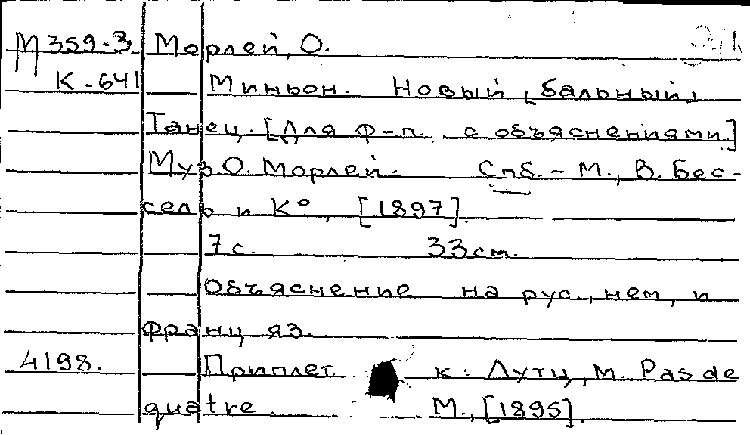 М 359-3 Морлей, О.
К-641 Миньон. Новый [бальный]
танец. [Для ф-п. с объяснениями.]
Муз. О. Морлей. Спб. - М., В. Бес-
сель и К°, [1897].
7 с. 33 см.
Объяснение на рус., нем., и
франц. яз.
4198. Приплет. к: Лутц, М. Pas de
quatre. М., [1895].